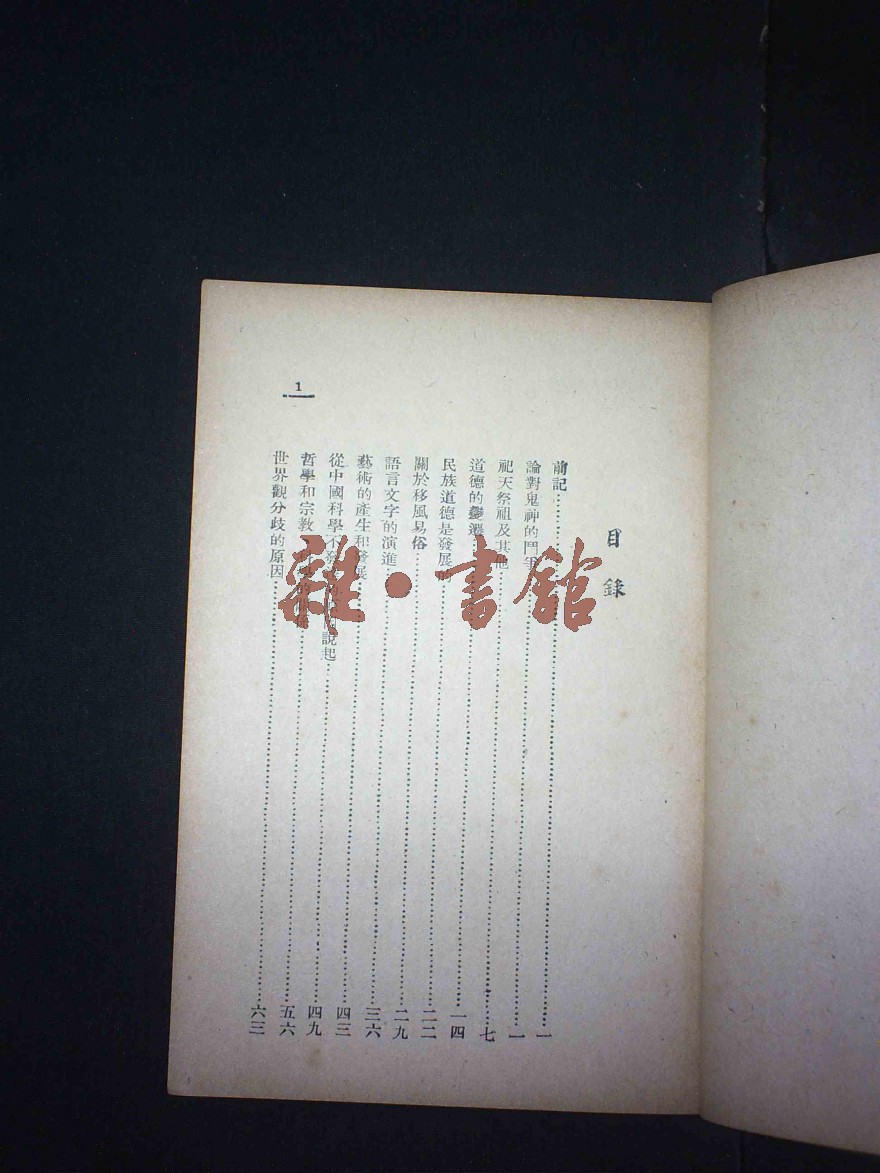 目錄
前記……一
論對鬼神的鬥爭……一
祀天祭祖及其他……七
道德的變遷……一四
民族道德是發展的……二二
關於移風易俗……二九
語言文字的演進……三六
藝術的產生和發展……四三
從中國科學不發達的原因說起……四九
哲學和宗教科學的關係……五六
世界觀分歧的原因……六三
1
雜·書館